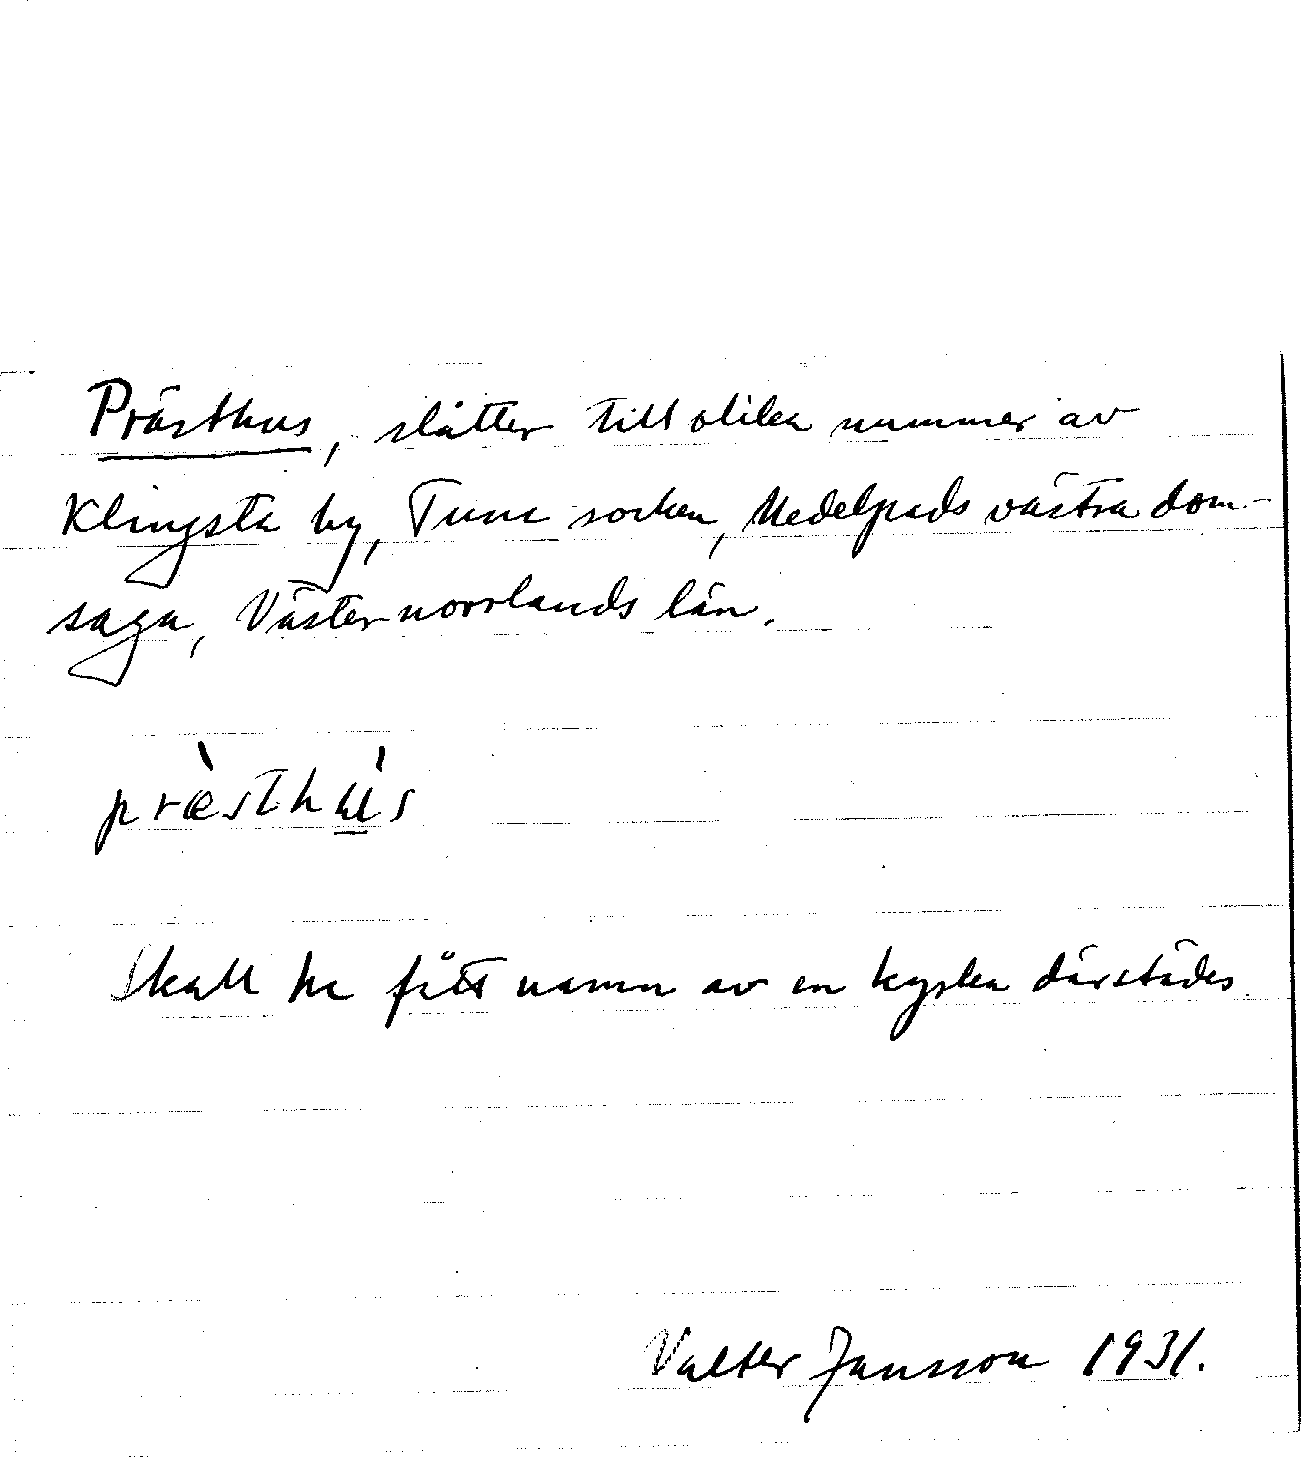 Prästhus, slåtter till olika nummer av
Klingsta by, Tuna socken, Medelpads västra dom-
saga, Västernorrlands län.
præ̀sthù̲s
Skall ha fått namn av en kyrka därstädes
Valter Jansson 1931.